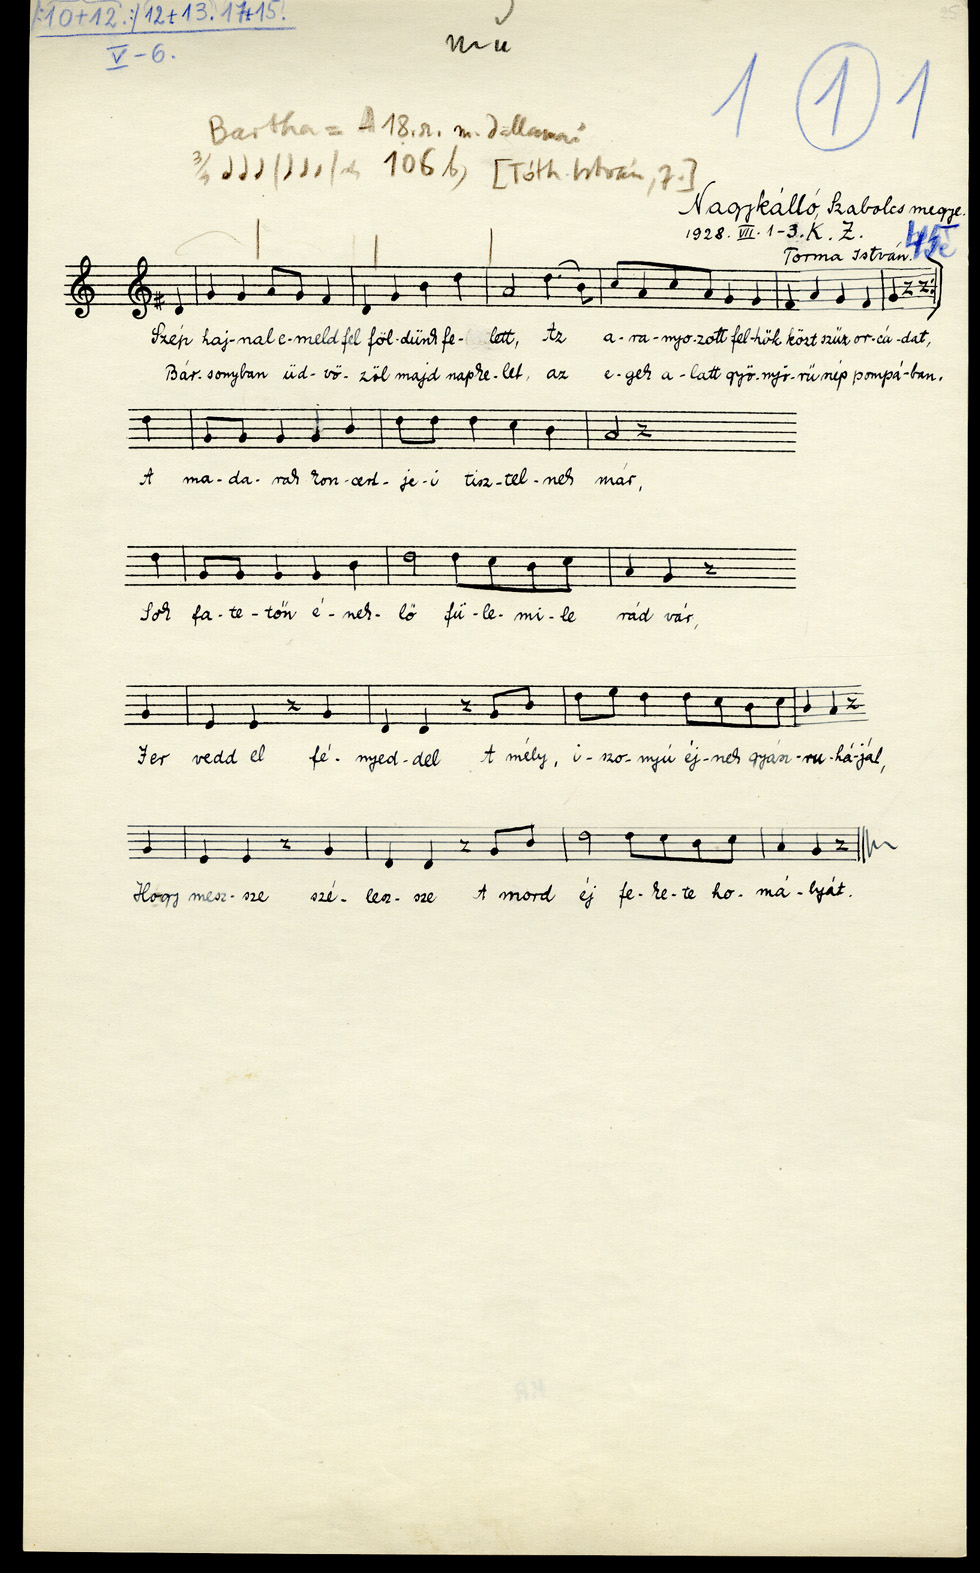 /:10+12.:/ 12+13. 17+15.
V-6.
mu
1 1 1
Bartha = A 18. sz. m. dallamai
3/4 106 b, [Tóth István, 7.]
Nagykálló, Szabolcs megye.
1928. VII. 1-3. K. Z.
Torma István.
Szép haj-nal e-meld fel föl-dünk fe- lett, Az a-ra-nyo-zott fel-hők közt szűz or-cá-dat,
Bár-sonyban üd-vö-zöl majd napke-let, az e-gek a-latt gyö-nyö-rű nép pompá-ban.
A ma-da-rak kon-cert-je-i tisz-tel-nek már,
Sok fa-te-tőn é-nek-lő fü-le-mi-le rád vár,
Jer vedd el fé-nyed-del A mély, i-szo-nyú éj-nek gyász-ru-há-ját,
Hogy mesz-sze szé-lesz-sze A mord éj fe-ke-te ho-má-lyát.